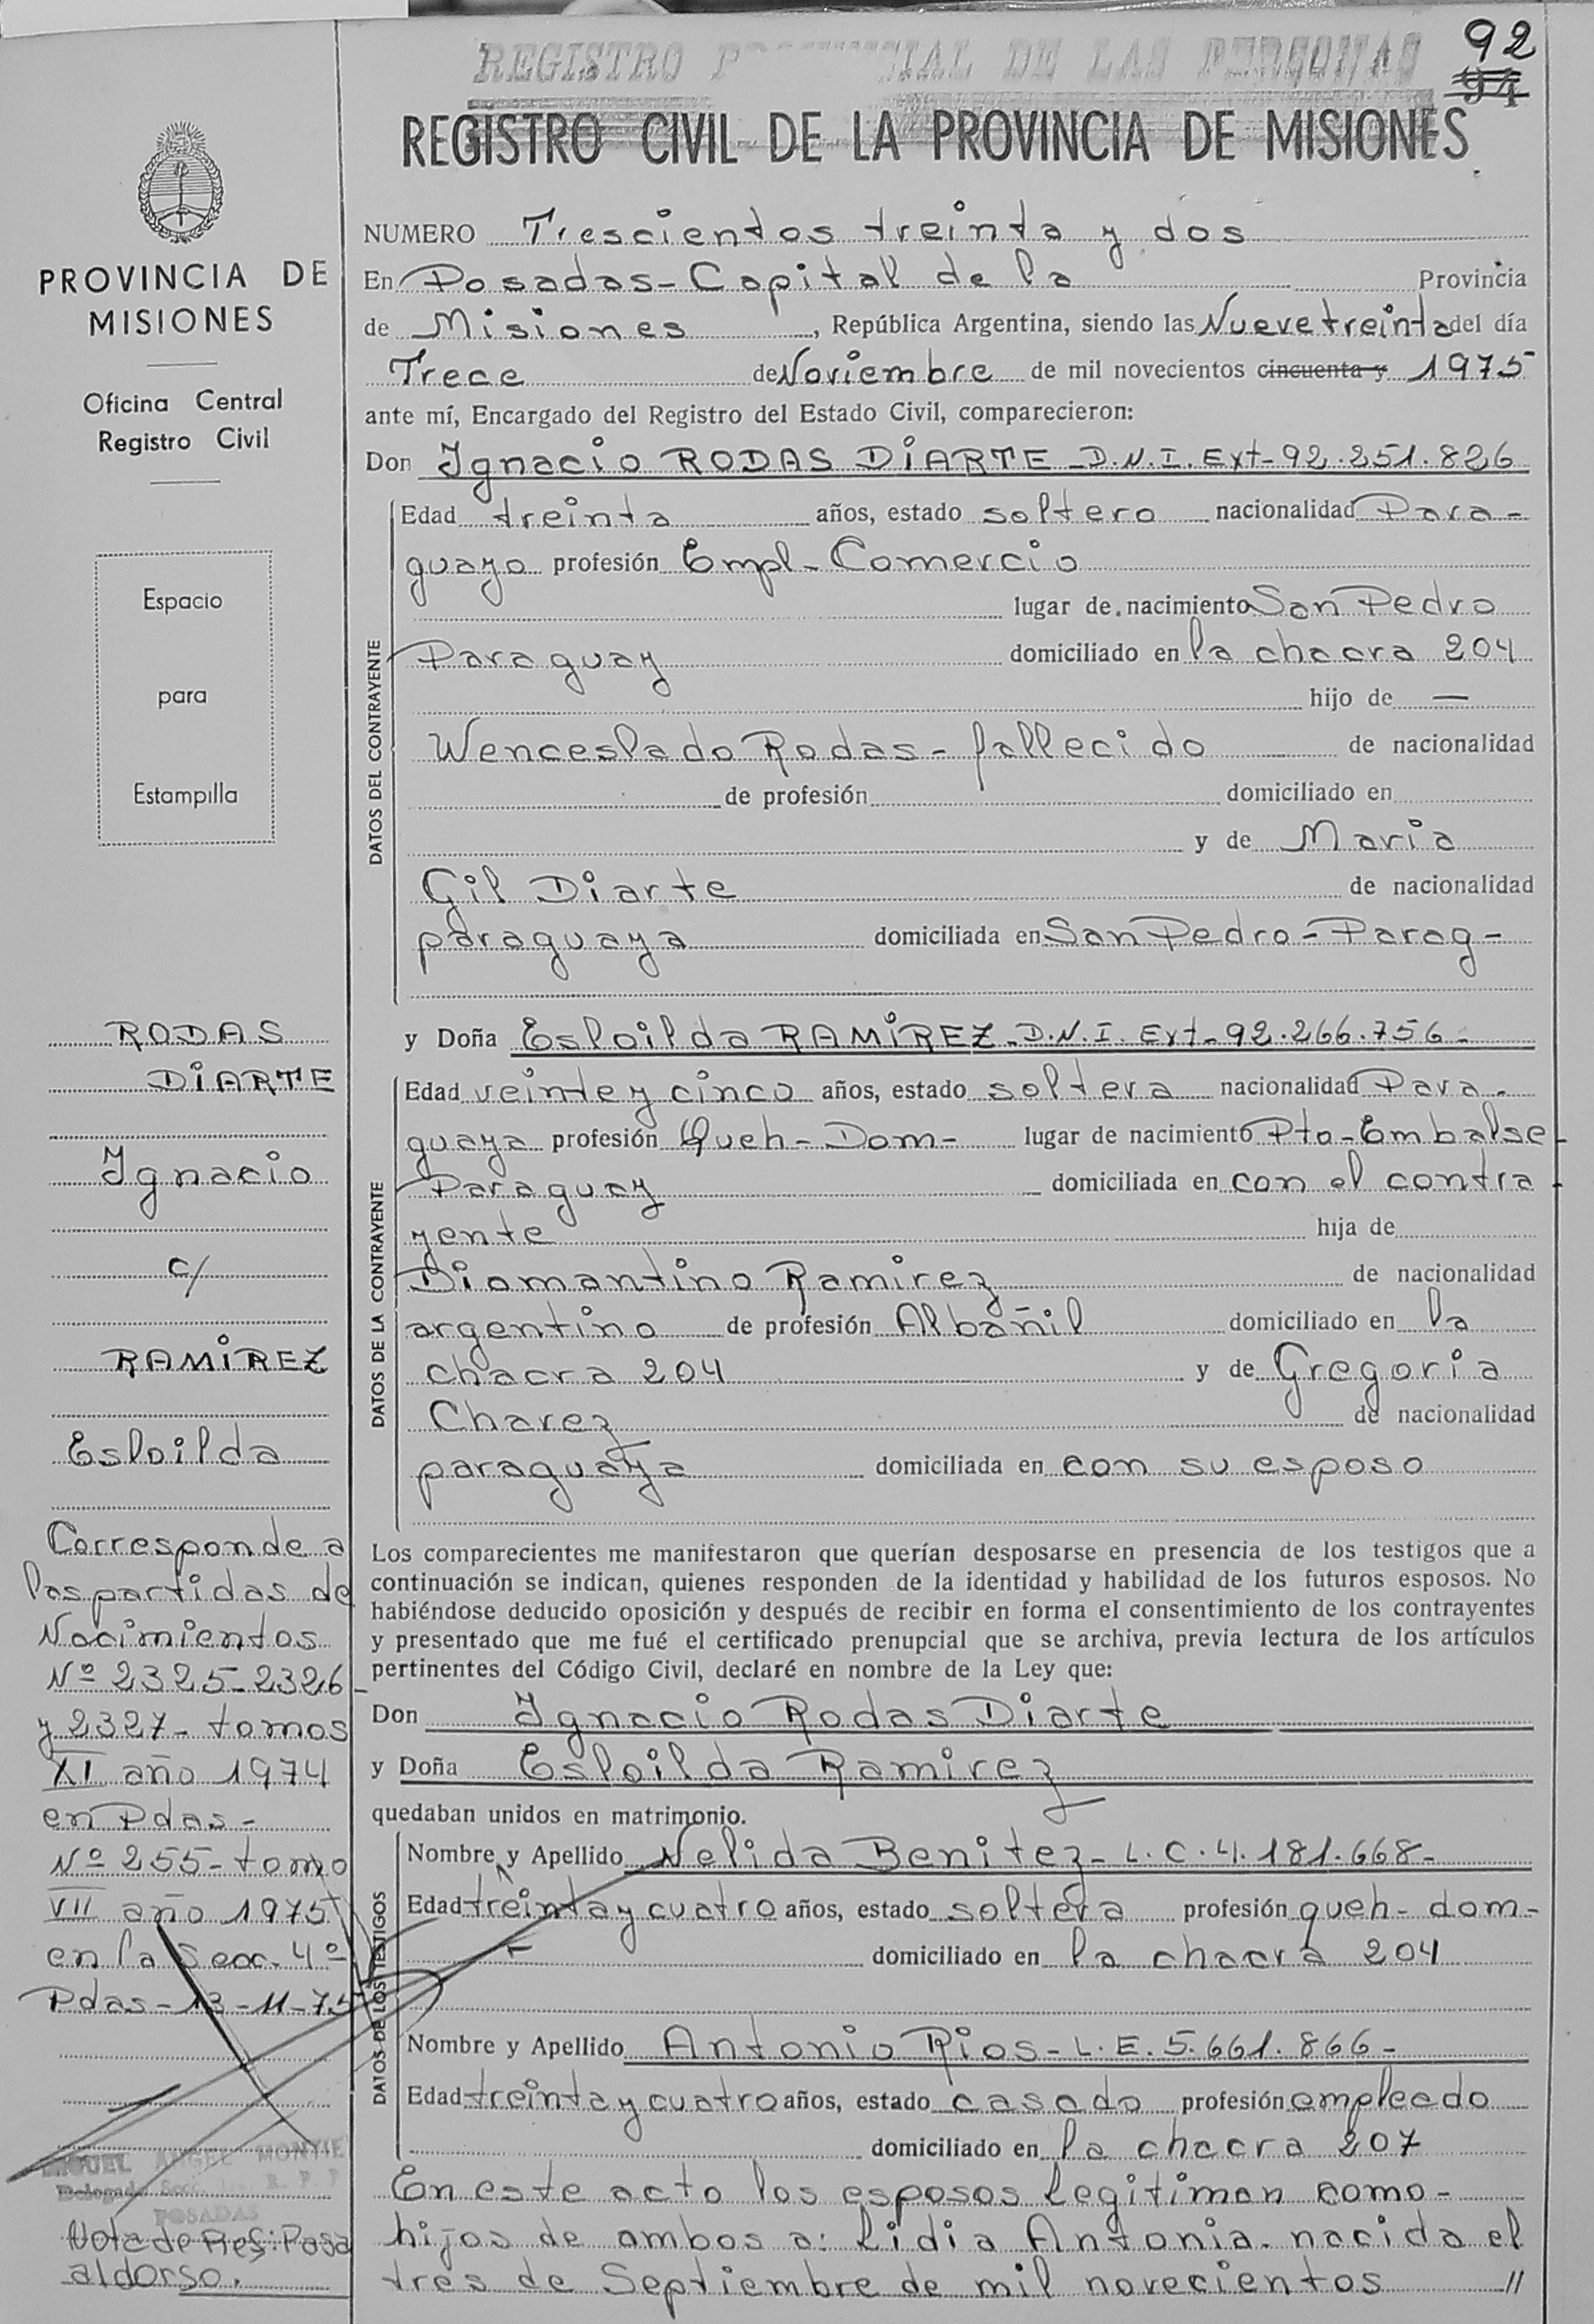 92
94
REGISTRO PROVINCIAL DE LAS PERSONAS
REGISTRO CIVIL DE LA PROVINCIA DE MISIONES
PROVINCIA DE
MISIONES
Oficina Central
Registro Civil
Espacio
para
Estampilla
RODAS
DIARTE
Ignacio
c/
RAMIREZ
Esloilda
Corresponde a
las partidas de
Nacimientos
Nº 2325-2326-
y 2327- tomos
XI año 1974
en Pdas-
Nº 255- tomo
VII año 1975
en la Secc. 4º
Pdas-13-11-75
MIGUEL ANGEL MONTIE
Delegado Secc. R. P. P.
POSADAS
Nota de Ref: Pasa
al dorso.
NUMERO Trescientos treinta y dos
En Posadas-Capital de la Provincia
de Misiones, República Argentina, siendo las Nueve treinta del día
Trece de Noviembre de mil novecientos cincuenta y 1975
ante mí, Encargado del Registro del Estado Civil, comparecieron:
Don Ignacio RODAS DIARTE-D.N.I. Ext-92.251.826
DATOS DEL CONTRAYENTE
Edad treinta años, estado soltero nacionalidad Para-
guayo profesión Empl-Comercio
lugar de nacimiento San Pedro
Paraguay domiciliado en la chacra 204
hijo de —
Wenceslado Rodas-fallecido de nacionalidad
de profesión domiciliado en
y de Maria
Gil Diarte de nacionalidad
paraguaya domiciliada en San Pedro-Parag-
y Doña Esloilda RAMIREZ-D.N.I. Ext-92.266.756-
DATOS DE LA CONTRAYENTE
Edad veinte y cinco años, estado soltera nacionalidad Para-
guaya profesión Queh-Dom- lugar de nacimiento Pto-Embalse-
Paraguay domiciliada en con el contra-
yente hija de
Diamantino Ramirez de nacionalidad
argentino de profesión Albañil domiciliado en la
chacra 204 y de Gregoria
Charez de nacionalidad
paraguaya domiciliada en con su esposo
Los comparecientes me manifestaron que querían desposarse en presencia de los testigos que a
continuación se indican, quienes responden de la identidad y habilidad de los futuros esposos. No
habiéndose deducido oposición y después de recibir en forma el consentimiento de los contrayentes
y presentado que me fué el certificado prenupcial que se archiva, previa lectura de los artículos
pertinentes del Código Civil, declaré en nombre de la Ley que:
Don Ignacio Rodas Diarte
y Doña Esloilda Ramirez
quedaban unidos en matrimonio.
DATOS DE LOS TESTIGOS
Nombre y Apellido Nelida Benitez-L.C.4.181.668-
Edad treinta y cuatro años, estado soltera profesión queh-dom-
domiciliado en la chacra 204
Nombre y Apellido Antonio Rios-L.E.5.661.866-
Edad treinta y cuatro años, estado casado profesión empleado
domiciliado en la chacra 207
En este acto los esposos legitiman como-
hijos de ambos a: Lidia Antonia-nacida el
tres de Septiembre de mil novecientos //